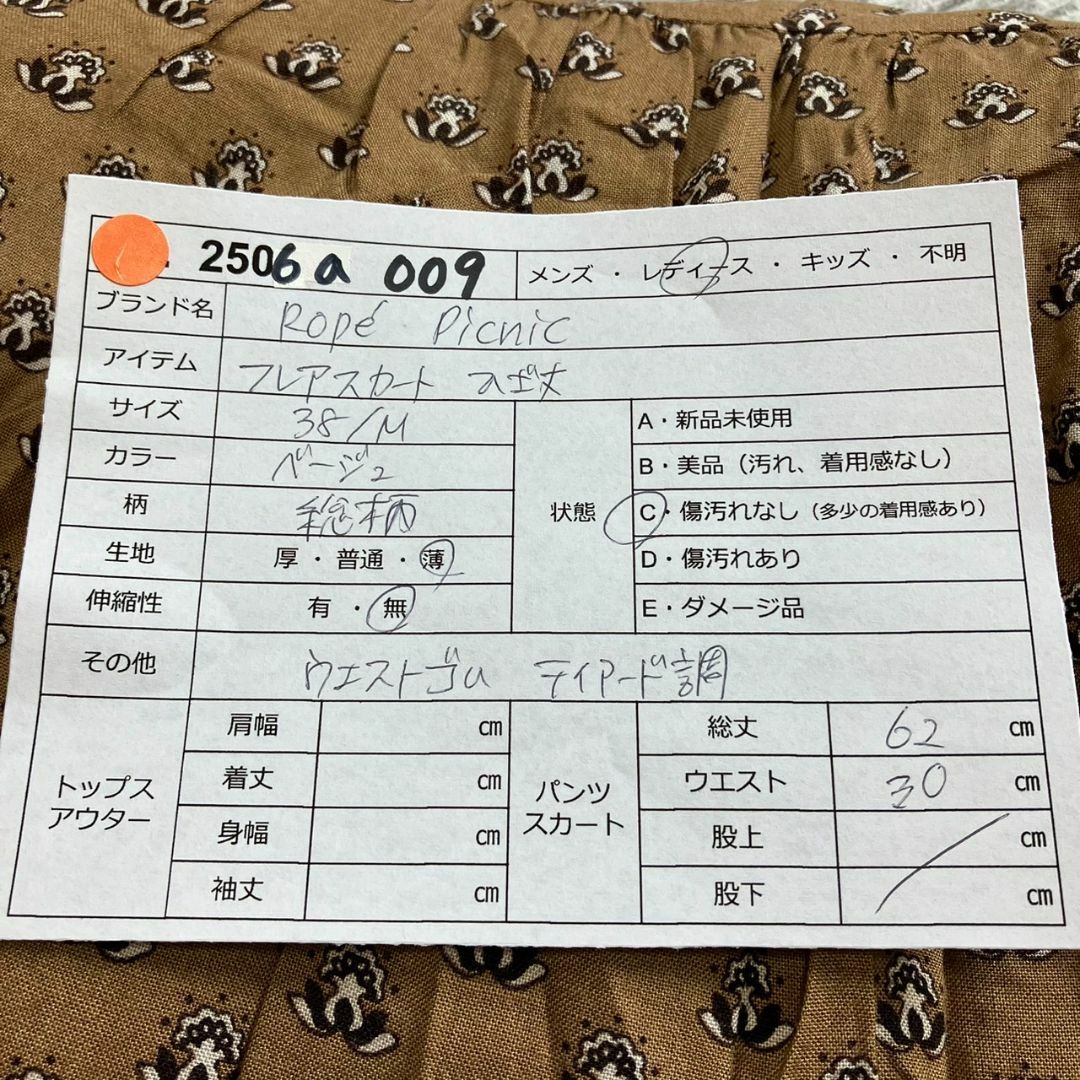 2506a 009
メンズ ・ レディース ・ キッズ ・ 不明
ブランド名 Ropé Picnic
アイテム フレアスカート ヒザ丈
サイズ 38/M
カラー ベージュ
柄 総柄
生地 厚 ・ 普通 ・ 薄
伸縮性 有 ・ 無
状態
A・新品未使用
B・美品（汚れ、着用感なし）
C・傷汚れなし（多少の着用感あり）
D・傷汚れあり
E・ダメージ品
その他 ウエストゴム ティアード調
トップス
アウター
肩幅 ㎝
着丈 ㎝
身幅 ㎝
袖丈 ㎝
パンツ
スカート
総丈 62 ㎝
ウエスト 30 ㎝
股上 ㎝
股下 ㎝